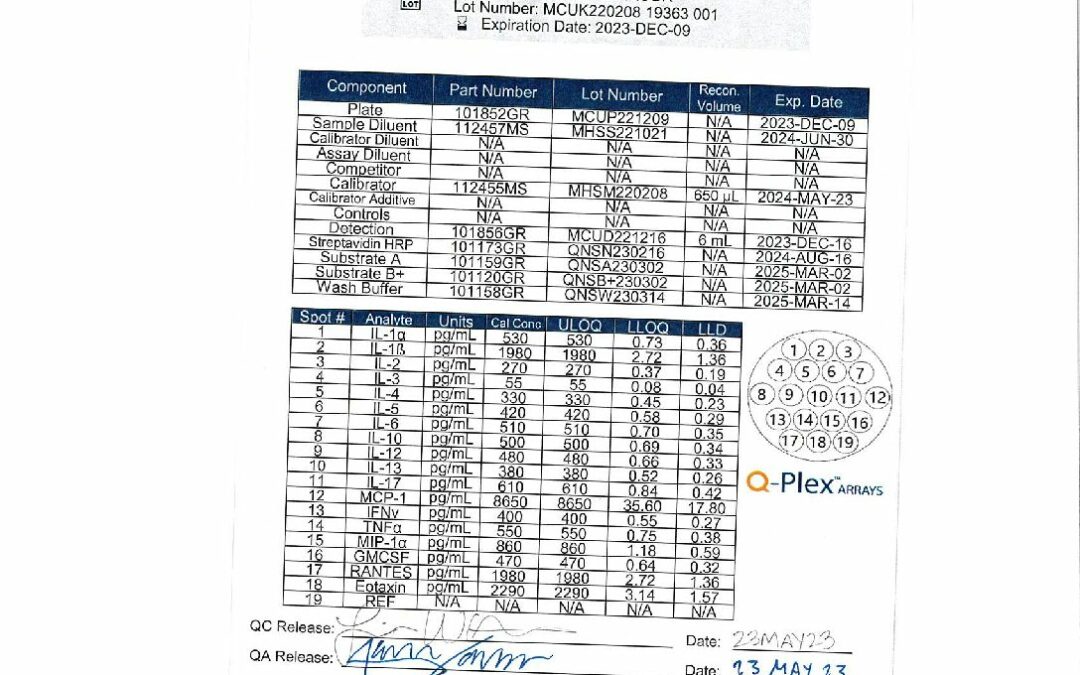 LOT
Lot Number: MCUK220208 19363 001
Expiration Date: 2023-DEC-09
Component Part Number Lot Number Recon. Volume Exp. Date
Plate 101852GR MCUP221209 N/A 2023-DEC-09
Sample Diluent 112457MS MHSS221021 N/A 2024-JUN-30
Calibrator Diluent N/A N/A N/A N/A
Assay Diluent N/A N/A N/A N/A
Competitor N/A N/A N/A N/A
Calibrator 112455MS MHSM220208 650 µL 2024-MAY-23
Calibrator Additive N/A N/A N/A N/A
Controls N/A N/A N/A N/A
Detection 101856GR MCUD221216 6 mL 2023-DEC-16
Streptavidin HRP 101173GR QNSN230216 N/A 2024-AUG-16
Substrate A 101159GR QNSA230302 N/A 2025-MAR-02
Substrate B+ 101120GR QNSB+230302 N/A 2025-MAR-02
Wash Buffer 101158GR QNSW230314 N/A 2025-MAR-14
Spot # Analyte Units Cal Conc ULOQ LLOQ LLD
1 IL-1α pg/mL 530 530 0.73 0.36
2 IL-1ß pg/mL 1980 1980 2.72 1.36
3 IL-2 pg/mL 270 270 0.37 0.19
4 IL-3 pg/mL 55 55 0.08 0.04
5 IL-4 pg/mL 330 330 0.45 0.23
6 IL-5 pg/mL 420 420 0.58 0.29
7 IL-6 pg/mL 510 510 0.70 0.35
8 IL-10 pg/mL 500 500 0.69 0.34
9 IL-12 pg/mL 480 480 0.66 0.33
10 IL-13 pg/mL 380 380 0.52 0.26
11 IL-17 pg/mL 610 610 0.84 0.42
12 MCP-1 pg/mL 8650 8650 35.60 17.80
13 IFNγ pg/mL 400 400 0.55 0.27
14 TNFα pg/mL 550 550 0.75 0.38
15 MIP-1α pg/mL 860 860 1.18 0.59
16 GMCSF pg/mL 470 470 0.64 0.32
17 RANTES pg/mL 1980 1980 2.72 1.36
18 Eotaxin pg/mL 2290 2290 3.14 1.57
19 REF N/A N/A N/A N/A N/A
1 2 3
4 5 6 7
8 9 10 11 12
13 14 15 16
17 18 19
Q-Plex™ ARRAYS
QC Release: Date: 23MAY23
QA Release: Date: 23 MAY 23